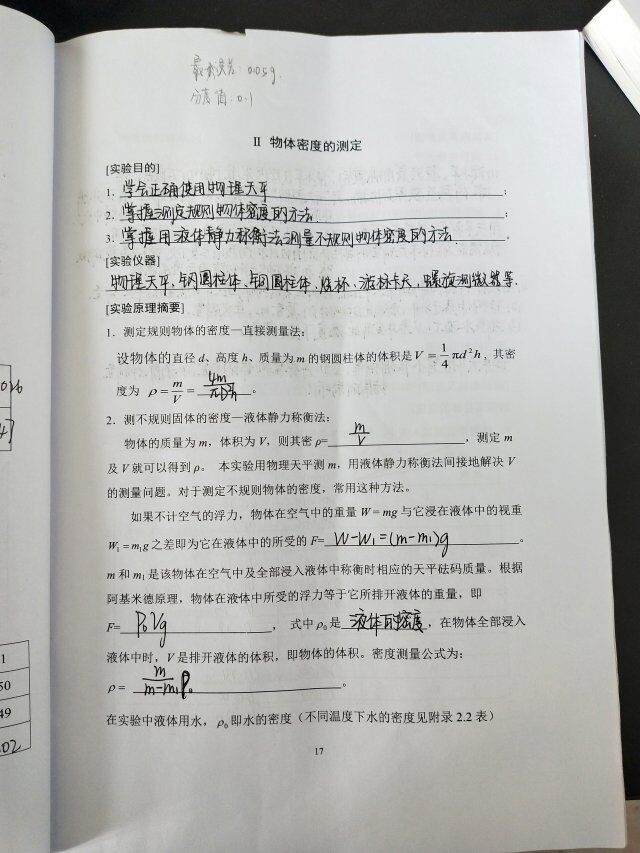 最大误差：0.05g.
分度值：0.1
II 物体密度的测定
[实验目的]
1. 学会正确使用物理天平；
2. 掌握测定规则物体密度的方法.；
3. 掌握用液体静力称衡法测量不规则物体密度的方法.。
[实验仪器]
物理天平、钢圆柱体、铜圆柱体、烧杯、游标卡尺、螺旋测微器等.
[实验原理摘要]
1. 测定规则物体的密度—直接测量法：
设物体的直径 d、高度 h、质量为 m 的钢圆柱体的体积是 V = 1/4 πd²h，其密
度为 ρ = m/V = 4m/πD²h。
2. 测不规则固体的密度—液体静力称衡法：
物体的质量为 m，体积为 V，则其密 ρ= m/V，测定 m
及 V 就可以得到 ρ。 本实验用物理天平测 m，用液体静力称衡法间接地解决 V
的测量问题。对于测定不规则物体的密度，常用这种方法。
如果不计空气的浮力，物体在空气中的重量 W = mg 与它浸在液体中的视重
W₁ = m₁g 之差即为它在液体中的所受的 F= W-W₁=(m-m₁)g。
m 和 m₁ 是该物体在空气中及全部浸入液体中称衡时相应的天平砝码质量。根据
阿基米德原理，物体在液体中所受的浮力等于它所排开液体的重量，即
F= ρ₀Vg， 式中 ρ₀ 是 液体的密度，在物体全部浸入
液体中时，V 是排开液体的体积，即物体的体积。密度测量公式为：
ρ = m/m-m₁ ρ₀。
在实验中液体用水，ρ₀ 即水的密度（不同温度下水的密度见附录 2.2 表）
17
1
50
49